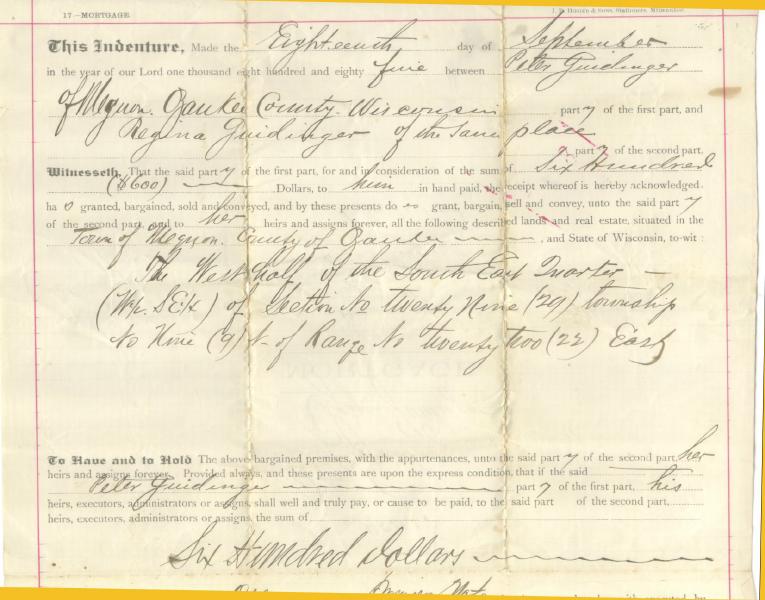 17.—MORTGAGE.
J. B. & Sons, Stationers, Milwaukee.
This Indenture, Made the Eighteenth day of September
in the year of our Lord one thousand eight hundred and eighty five between Peter Guidinger
of Mequon. Ozaukee County. Wisconsin party of the first part, and
Regina Guidinger of the same place
party of the second part.
Witnesseth, That the said party of the first part, for and in consideration of the sum of Six Hundred
($600) Dollars, to him in hand paid, the receipt whereof is hereby acknowledged.
ha s granted, bargained, sold and conveyed, and by these presents do es grant, bargain, sell and convey, unto the said party
of the second part, and to her heirs and assigns forever, all the following described lands and real estate, situated in the
Town of Mequon. County of Ozaukee, and State of Wisconsin, to-wit:
The West half of the South East Quarter
(W½ S.E¼) of Section No twenty Nine (29) township
No Nine (9) N. of Range No twenty two (22) East
To Have and to Hold The above bargained premises, with the appurtenances, unto the said party of the second part, her
heirs and assigns forever. Provided always, and these presents are upon the express condition, that if the said
Peter Guidinger party of the first part, his
heirs, executors, administrators or assigns, shall well and truly pay, or cause to be paid, to the said part of the second part,
heirs, executors, administrators or assigns, the sum of
Six Hundred Dollars